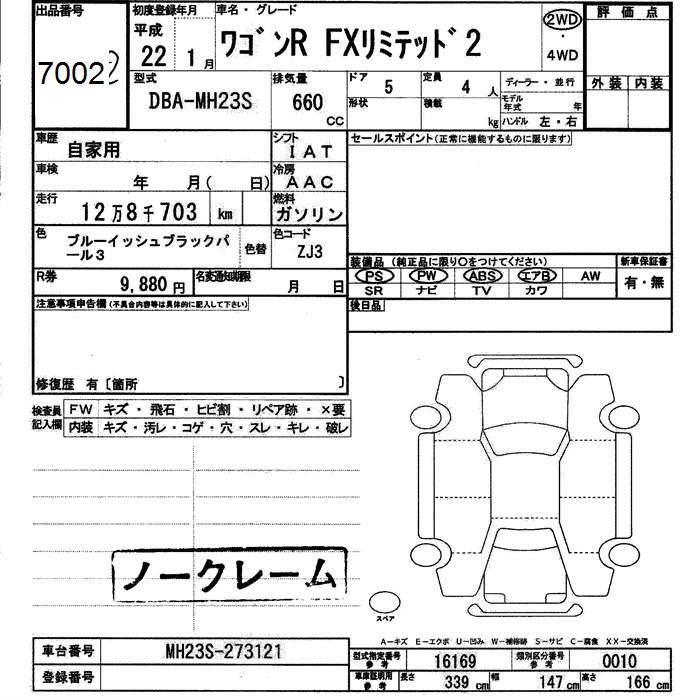 出品番号 初度登録年月 車名・グレード 2WD 評価点
70022 平成 22年 1月 ワゴンR FXリミテッド2 ・ 4WD
型式 排気量 ドア 5 定員 4人 ディーラー・並行 外装 内装
DBA-MH23S 660 CC 形状 積載 kg モデル年式 年 ハンドル 左・右
車歴 自家用 シフト IAT セールスポイント(正常に機能するものに限ります)
車検 年 月( 日) 冷房 AAC
走行 12万8千703 km 燃料 ガソリン
色 ブルーイッシュブラックパール3 色替 色コード ZJ3
装備品 (純正品に限り○をつけてください) 新車保証書
R券 9,880円 名変通知期限 月 日 PS PW ABS エアB AW 有・無
SR ナビ TV カワ
注意事項申告欄(不具合内容等は具体的に記入して下さい) 後日品
修復歴 有〔箇所 〕
検査員記入欄 FW キズ・飛石・ヒビ割・リペア跡・×要
内装 キズ・汚レ・コゲ・穴・スレ・キレ・破レ
ノークレーム
スペア
A−キズ E−エクボ U−凹み W−補修跡 S−サビ C−腐食 XX−交換済
車台番号 MH23S-273121 型式指定番号 参考 16169 類別区分番号 参考 0010
登録番号 車庫証明用 参考 長さ 339cm 幅 147cm 高さ 166cm